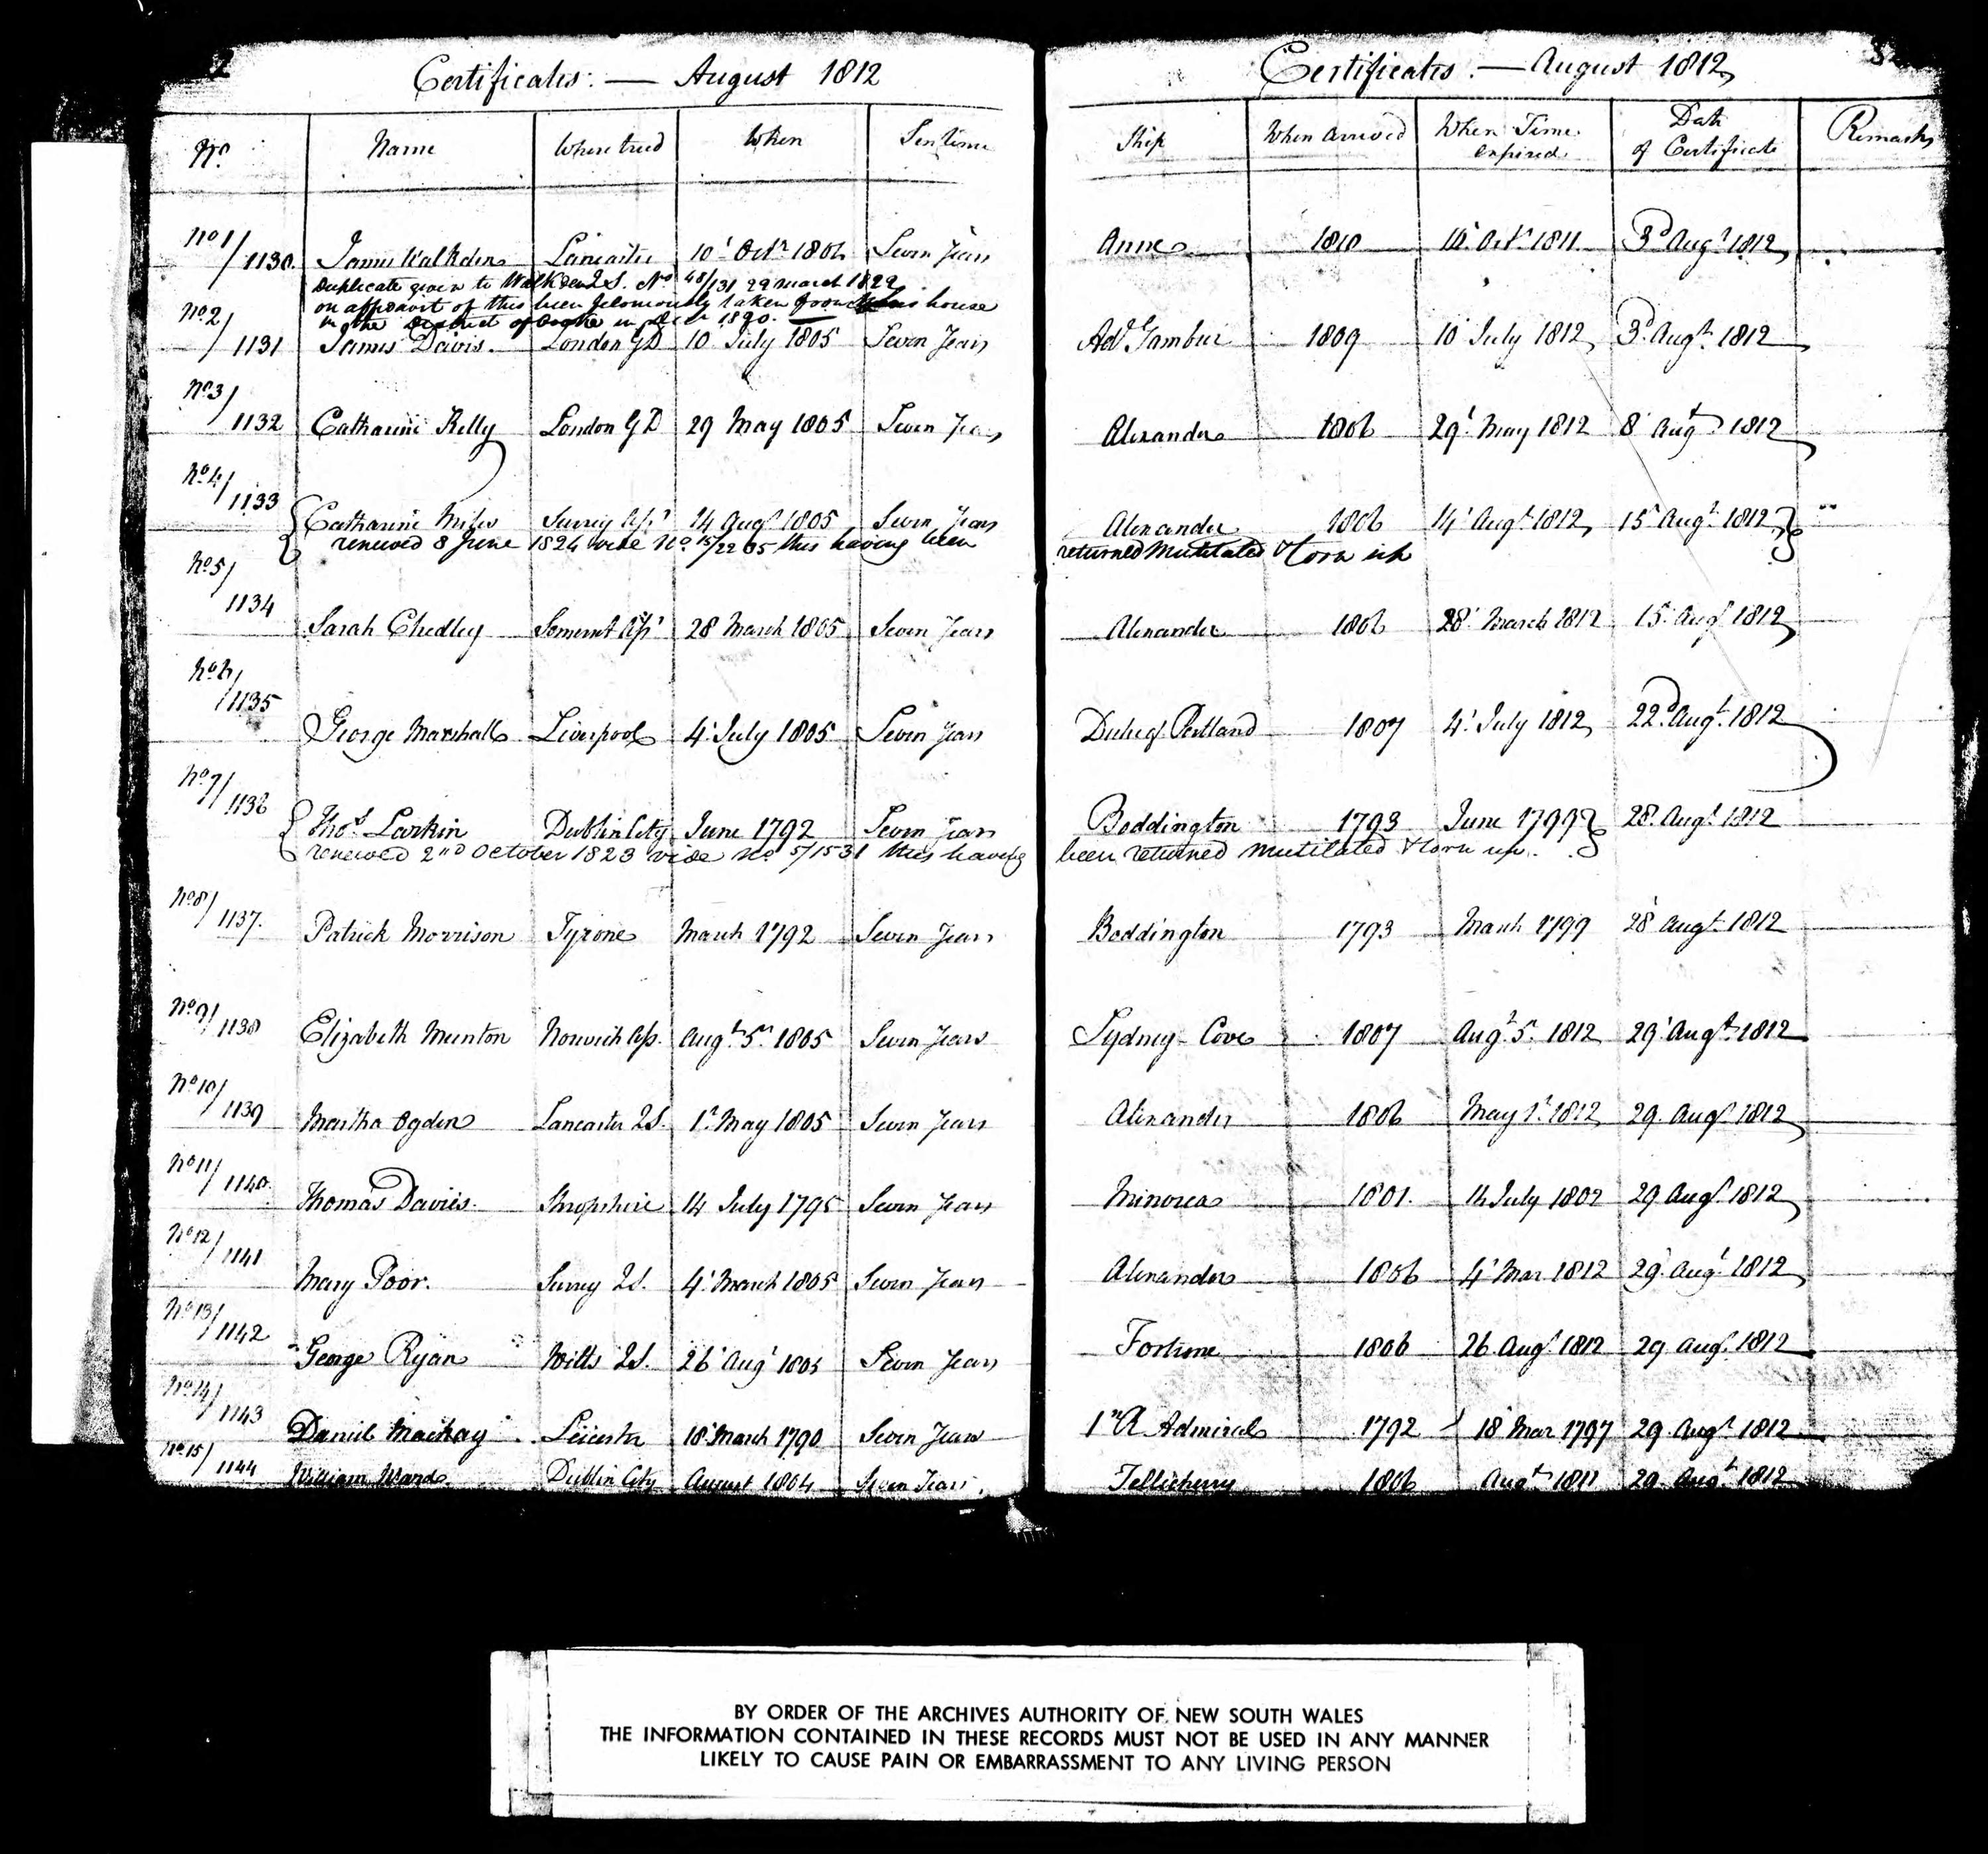 2
Certificates. — August 1812
No. Name Where tried When Sentence
No 1/1130 James Walkden Lancaster 10' Octr 1804 Seven Years
Duplicate given to Walkden Q.S. No 48/131 29 March 1822
on affidavit of this been feloniously taken from his house
in the District of in Decr 1820.
No. 2/1131 James Davis. London G D 10 July 1805 Seven Years
No. 3/1132 Catharine Kelly London G D 29 May 1805 Seven Years
No. 4/1133 Catharine Miles Surrey Ass' 14 Augt 1805 Seven Years
renewed 8 June 1824 vide No. 15/2235 this having been
No. 5/1134 Sarah Chedley Somerset Ass' 28 March 1805 Seven Years
No. 6/1135 George Marshall Liverpool 4' July 1805 Seven Years
No. 7/1136 Thos. Larkin Dublin City June 1792 Seven Years
renewed 2nd October 1823 vide No 5/1531 this having
No. 8/1137. Patrick Morrison Tyrone March 1792 Seven Years
No. 9/1138 Elizabeth Munton Norwich Ass. Augt. 5. 1805 Seven Years
No. 10/1139 Martha Ogden Lancaster Q S. 1st May 1805 Seven Years
No 11/1140. Thomas Davies. Shropshire 14 July 1795 Seven Years
No. 12/1141 Mary Poor. Surrey Q S. 4' March 1805 Seven Years
No. 13/1142 George Ryan Wilts Q S. 26' Augt 1805 Seven Years
No. 14/1143 Daniel Mackay Leicester 18' March 1790 Seven Years
No. 15/1144 William Ward Dublin City August 1804 Seven Years.
3
Certificates. — August 1812
Ship When arrived When Time expired Date of Certificate Remarks
Anne 1810 10' Octr 1811. 3d Augt 1812
Adl. Gambier 1809 10 July 1812 3d Augt. 1812
Alexander 1806 29' May 1812 8 Augt 1812
Alexander 1806 14' Augt 1812 15 Augt. 1812
returned Mutilated & torn up
Alexander 1806 28' March 1812 15. Augt 1812
Duke of Portland 1807 4' July 1812 22d Augt. 1812
Boddington 1793 June 1799 28. Augt 1812
been returned Mutilated & torn up.
Boddington 1793 March 1799 28' Augt. 1812
Sydney Cove 1807 Augt. 5. 1812 29' Augt. 1812
Alexander 1806 May 1st. 1812 29. Augt 1812
Minorca 1801. 14 July 1802 29 Augt. 1812
Alexander 1806 4' Mar 1812 29' Augt 1812
Fortune 1806 26. Augt 1812 29. Augt. 1812
Rl Admiral 1792 18' Mar 1797 29. Augt 1812
Tellicherry 1806 Augt 1811 29. Augt 1812
BY ORDER OF THE ARCHIVES AUTHORITY OF NEW SOUTH WALES
THE INFORMATION CONTAINED IN THESE RECORDS MUST NOT BE USED IN ANY MANNER
LIKELY TO CAUSE PAIN OR EMBARRASSMENT TO ANY LIVING PERSON